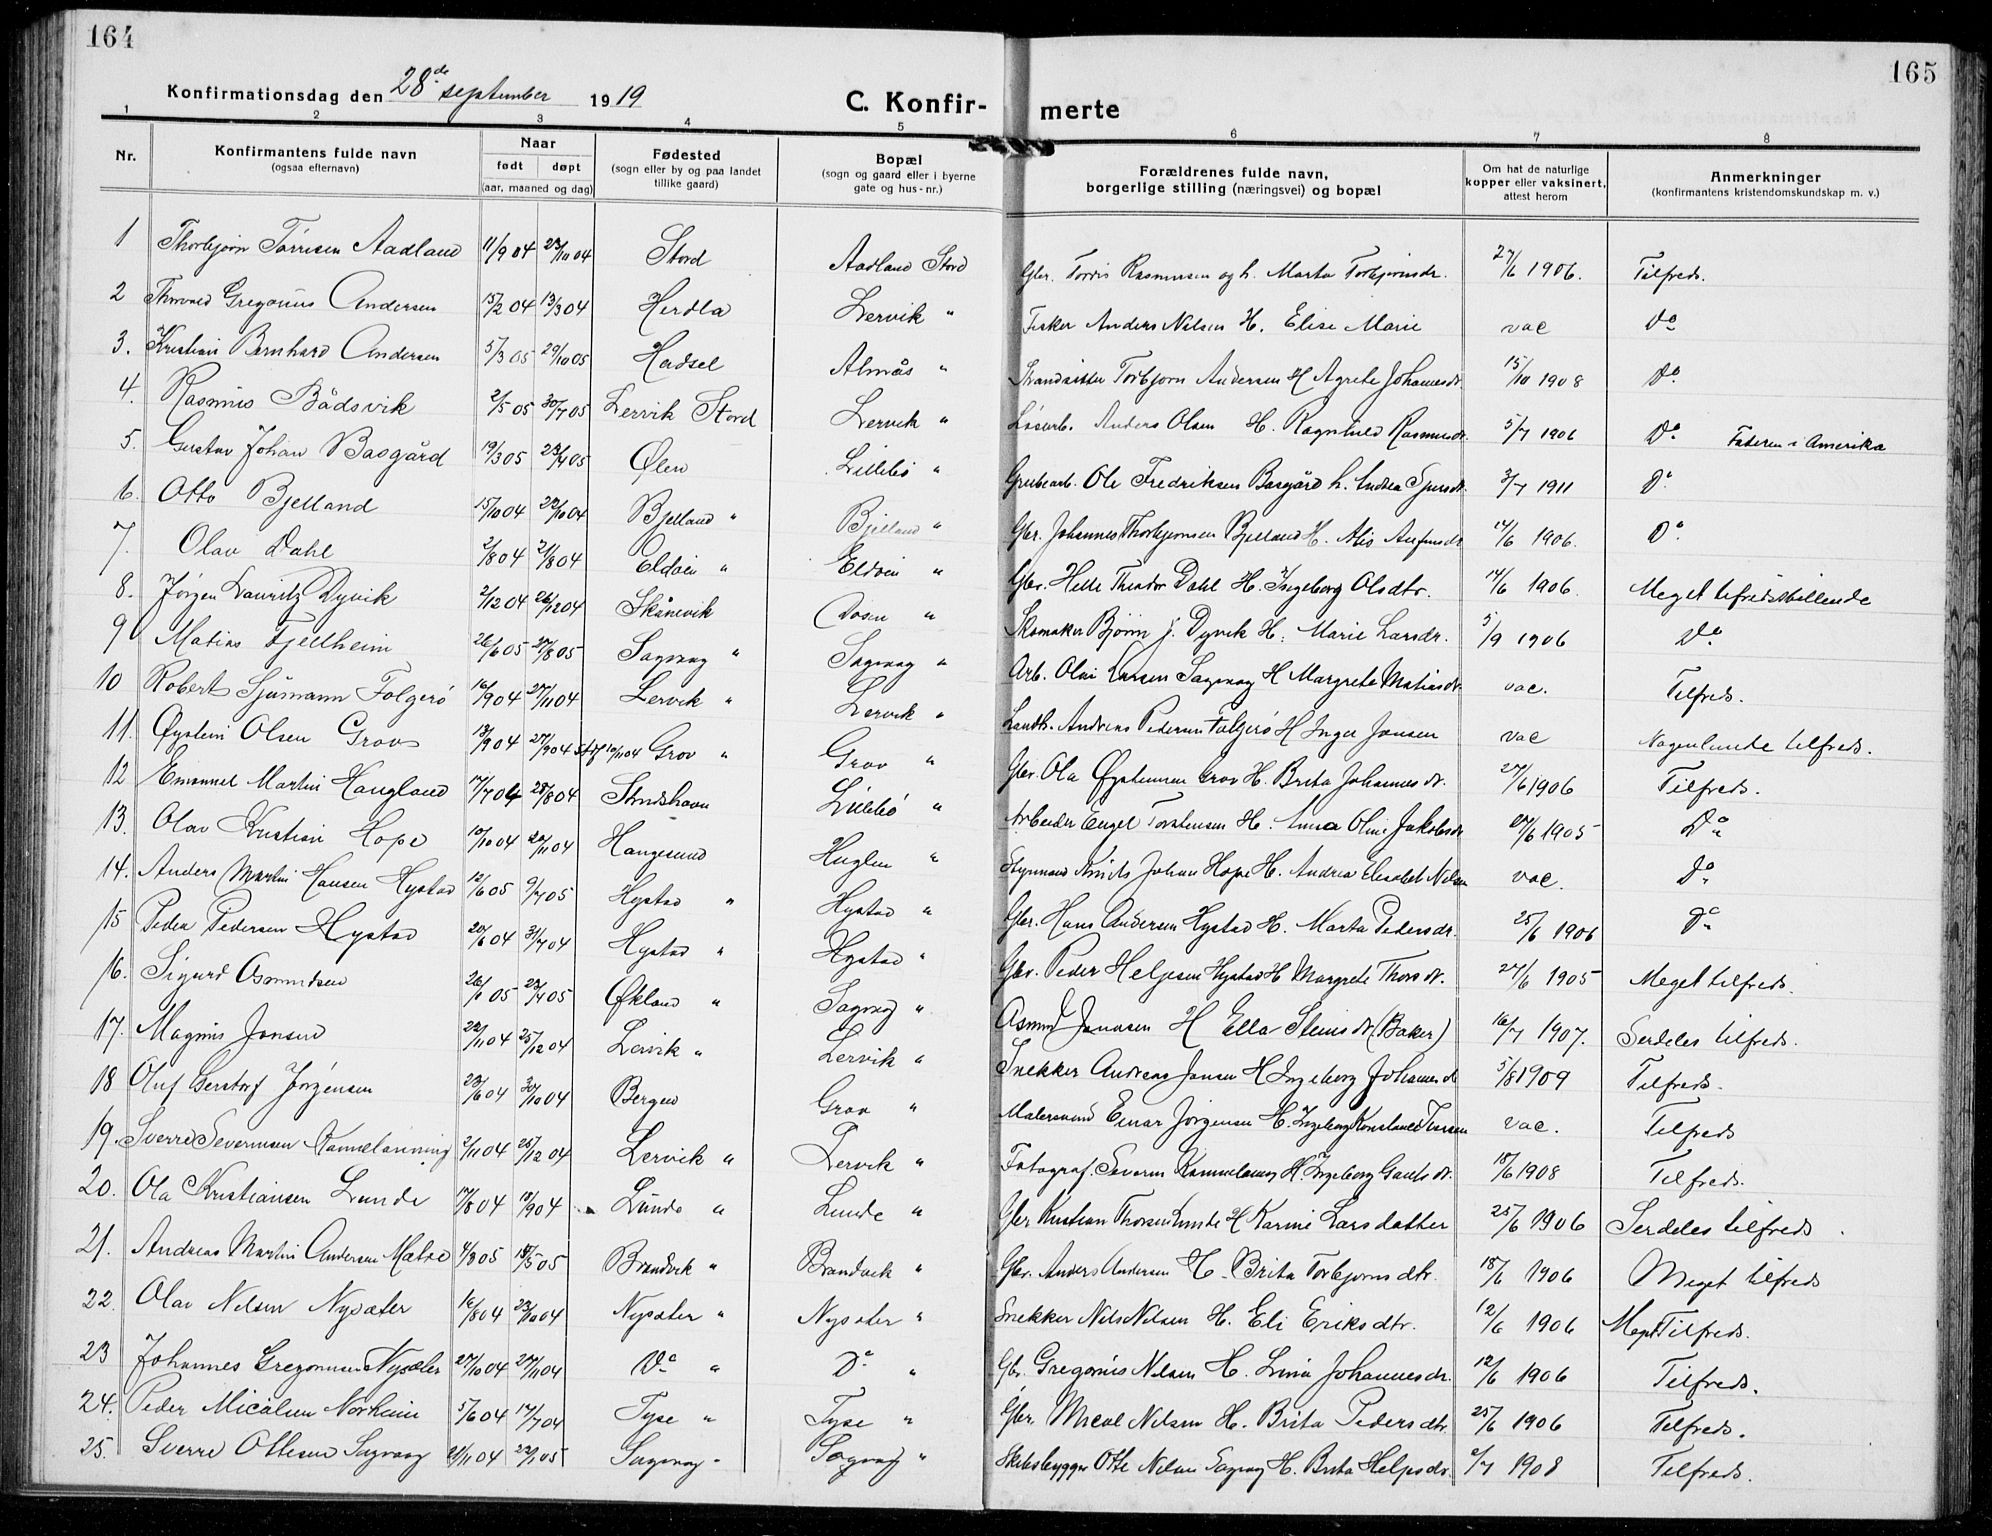 164
165
Konfirmationsdag den 28de september 1919
C. Konfirmerte
1 2 3 4 5 6 7 8
Nr. | Konfirmantens fulde navn (ogsaa efternavn) | Naar født døpt (aar, maaned og dag) | Fødested (sogn eller by og paa landet tillike gaard) | Bopæl (sogn og gaard eller i byerne gate og hus-nr.) | Forældrenes fulde navn, borgerlige stilling (næringsvei) og bopæl | Om hat de naturlige kopper eller vaksinert, attest herom | Anmerkninger (konfirmantens kristendomskundskap m. v.)
1 Thorbjørn Tørrisen Aadland 11/9 04 23/10 04 Stord Aadland Stord Gbr. Torris Rasmussen og h. Marta Torbjørnsdr. 27/6 1906. Tilfreds.
2 Thorvald Gregorius Andersen 15/2 04 13/3 04 Herdla Lervik " Fisker Anders Nilsen H. Elise Marie vac Do
3. Kristian Bernhard Andersen 5/3 05 29/10 05 Hadsel Almås " Strandsitter Torbjørn Andersen H Agrete Johannesdr. 15/10 1908 Do
4. Rasmus Bådsvik 2/5 05 30/7 05 Lervik Stord Lervik " Løsarb. Anders Olsen H. Ragnhild Rasmusdr. 5/7 1906 Do Faderen i Amerika
5. Gustav Johan Basgård 19/3 05 23/4 05 Ølen Lillebø " Grubearb. Ole Fredriksen Basgård h. Andrea Sjursdr. 3/7 1911 Do
6. Otto Bjelland 15/10 04 22/10 04 Bjelland " Bjelland " Gbr. Johannes Thorbjørnsen Bjelland H. 14/6 1906. Do
7. Olav Dahl 2/8 04 21/8 04 Eldøen " Eldøen " Gbr. Helle Theodor Dahl H. Ingeborg Olsdtr. 14/6 1906. Meget tilfredsstillende
8. Jørgen Lauritz Dyvik 2/12 04 26/12 04 Skånevik " Skomaker Bjørn J. Dyvik H. Marie Larsdr. 5/9 1906 Do
9 Matias Fjellheim 26/6 05 27/8 05 Sagvag " Sagvag " Arb. Olai Larsen Sagvag H Margrete Matiasdr. vac. Tilfreds.
10 Robert Sjumann Folgerø 16/9 04 27/11 04 Lervik " Lervik " Landh. Andreas Pedersen Folgerø H Inger Jansen vac Nogenlunde tilfreds.
11. Øystein Olsen Grov 13/9 04 27/9 04 stadf 10/11 04 Grov " Grov " Gbr. Ola Øystensen Grov H. Brita Johannesdr. 27/6 1906 Tilfreds.
12 Emanuel Martin Haugland 17/7 04 28/8 04 Lillebø " Arbeider Engel Torstensen H. Anna Oline Jakobsdr 27/6 1905 Do
13. Olav Kristian Hope 10/10 04 20/11 04 Haugesund Huglen " Johan Hope H. Andrea Elisabet Nilsen vac. Do
14. Anders Martin Hansen Hystad 12/6 05 9/7 05 Hystad " Hystad " Gbr. Hans Andersen Hystad H. Marta Pedersdr. 25/6 1906 Do
15 Peder Pedersen Hystad 20/6 04 31/7 04 Hystad " Hystad " Gbr. Peder Helgesen Hystad H Margrete Thorsdr. 27/6 1905 Meget tilfreds.
16. Sigurd Osmundsen 26/1 05 23/4 05 Økland " Sagvag " Osmund Jonassen H Ella Steinsdr (Baker) 16/7 1907. Serdeles tilfreds.
17. Magnus Jansen 22/11 04 25/12 04 Lervik " Lervik " Snekker Andreas Jansen H Ingeborg Johannesdr 5/8 1909 Tilfreds.
18 Oluf Gerstorf Jørgensen 23/6 04 30/10 04 Bergen Grov " Malersvend Einar Jørgensen H. Ingeborg Konstance vac. Tilfreds
19. Sverre Severinsen Kammelænning 2/11 04 25/12 04 Lervik " Lervik " Fotograf. Severin Kammelænning H. Ingeborg Gautsdr. 18/6 1908 Tilfreds.
20. Ola Kristiansen Lunde 17/8 04 18/9 04 Lunde " Lunde " Gbr Kristian Thorsen Lunde H Karine Larsdatter 25/6 1906 Serdeles tilfreds.
21. Andreas Martin Andersen Matre 4/3 05 18/5 05 Brandvik " Brandvik " Gbr. Anders Andersen H. Brita Torbjørnsdtr. 18/6 1906 Meget tilfreds
22. Olav Nilsen Nysæter 16/8 04 23/10 04 Nysæter " Nysæter " Snekker Nils Nilsen H. Eli Eriksdtr. 12/6 1906 Meget Tilfreds.
23 Johannes Gregoriussen Nysæter 27/10 04 27/11 04 Do " Do " Gbr. Gregorius Nilsen H. Lina Johannesdr. 12/6 1906 Tilfreds.
24. Peder Micalsen Norheim 5/6 04 17/7 04 Tyse " Tyse " Gbr. Micал Nilsen H. Brita Pedersdtr. 25/6 1906 Tilfreds.
25. Sverre Ottesen Sagvaag 21/11 04 22/1 05 Sagvag " Sagvag " Skibsbygger Otte Nilsen Sagvag H. Brita Helgesdr. 2/7 1908 Tilfreds.